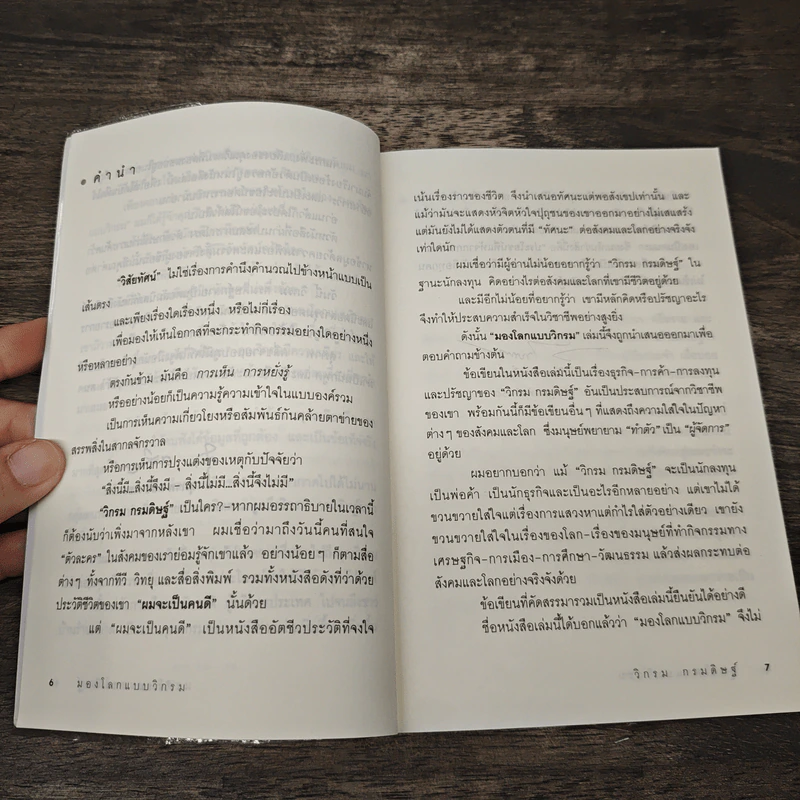 คำนำ
"วิสัยทัศน์" ไม่ใช่เรื่องการคำนึงคำนวณไปข้างหน้าแบบเป็น
เส้นตรง
และเพียงเรื่องใดเรื่องหนึ่ง หรือไม่กี่เรื่อง
เพื่อมองให้เห็นโอกาสที่จะกระทำกิจกรรมอย่างใดอย่างหนึ่ง
หรือหลายอย่าง
ตรงกันข้าม มันคือ การเห็น การหยั่งรู้
หรืออย่างน้อยก็เป็นความรู้ความเข้าใจในแบบองค์รวม
เป็นการเห็นความเกี่ยวโยงหรือสัมพันธ์กันคล้ายตาข่ายของ
สรรพสิ่งในสากลจักรวาล
หรือการเห็นการปรุงแต่งของเหตุกับปัจจัยว่า
"สิ่งนี้มี...สิ่งนี้จึงมี - สิ่งนี้ไม่มี...สิ่งนี้จึงไม่มี"
"วิกรม กรมดิษฐ์" เป็นใคร?-หากผมอรรถาธิบายในเวลานี้
ก็ต้องนับว่าเพิ่งมาจากหลังเขา ผมเชื่อว่ามาถึงวันนี้คนที่สนใจ
"ตัวละคร" ในสังคมของเราย่อมรู้จักเขาแล้ว อย่างน้อยๆ ก็ตามสื่อ
ต่างๆ ทั้งจากทีวี วิทยุ และสื่อสิ่งพิมพ์ รวมทั้งหนังสือดังที่ว่าด้วย
ประวัติชีวิตของเขา "ผมจะเป็นคนดี" นั้นด้วย
แต่ "ผมจะเป็นคนดี" เป็นหนังสืออัตชีวประวัติที่จงใจ
6 มองโลกแบบวิกรม
เน้นเรื่องราวของชีวิต จึงนำเสนอทัศนะแต่พอสังเขปเท่านั้น และ
แม้ว่ามันจะแสดงหัวจิตหัวใจปุถุชนของเขาออกมาอย่างไม่เสแสร้ง
แต่มันยังไม่ได้แสดงตัวตนที่มี "ทัศนะ" ต่อสังคมและโลกอย่างจริงจัง
เท่าใดนัก
ผมเชื่อว่ามีผู้อ่านไม่น้อยอยากรู้ว่า "วิกรม กรมดิษฐ์" ใน
ฐานะนักลงทุน คิดอย่างไรต่อสังคมและโลกที่เขามีชีวิตอยู่ด้วย
และมีอีกไม่น้อยที่อยากรู้ว่า เขามีหลักคิดหรือปรัชญาอะไร
จึงทำให้ประสบความสำเร็จในวิชาชีพอย่างสูงยิ่ง
ดังนั้น "มองโลกแบบวิกรม" เล่มนี้จึงถูกนำเสนอออกมาเพื่อ
ตอบคำถามข้างต้น
ข้อเขียนในหนังสือเล่มนี้เป็นเรื่องธุรกิจ-การค้า-การลงทุน
และปรัชญาของ "วิกรม กรมดิษฐ์" อันเป็นประสบการณ์จากวิชาชีพ
ของเขา พร้อมกันนี้ก็มีข้อเขียนอื่นๆ ที่แสดงถึงความใส่ใจในปัญหา
ต่างๆ ของสังคมและโลก ซึ่งมนุษย์พยายาม "ทำตัว" เป็น "ผู้จัดการ"
อยู่ด้วย
ผมอยากบอกว่า แม้ "วิกรม กรมดิษฐ์" จะเป็นนักลงทุน
เป็นพ่อค้า เป็นนักธุรกิจและเป็นอะไรอีกหลายอย่าง แต่เขาไม่ได้
ขวนขวายใส่ใจแต่เรื่องการแสวงหาแต่กำไรใส่ตัวอย่างเดียว เขายัง
ขวนขวายใส่ใจในเรื่องของโลก-เรื่องของมนุษย์ที่ทำกิจกรรมทาง
เศรษฐกิจ-การเมือง-การศึกษา-วัฒนธรรม แล้วส่งผลกระทบต่อ
สังคมและโลกอย่างจริงจังด้วย
ข้อเขียนที่คัดสรรมารวมเป็นหนังสือเล่มนี้ยืนยันได้อย่างดี
ชื่อหนังสือเล่มนี้ได้บอกแล้วว่า "มองโลกแบบวิกรม" จึงไม่
วิกรม กรมดิษฐ์ 7